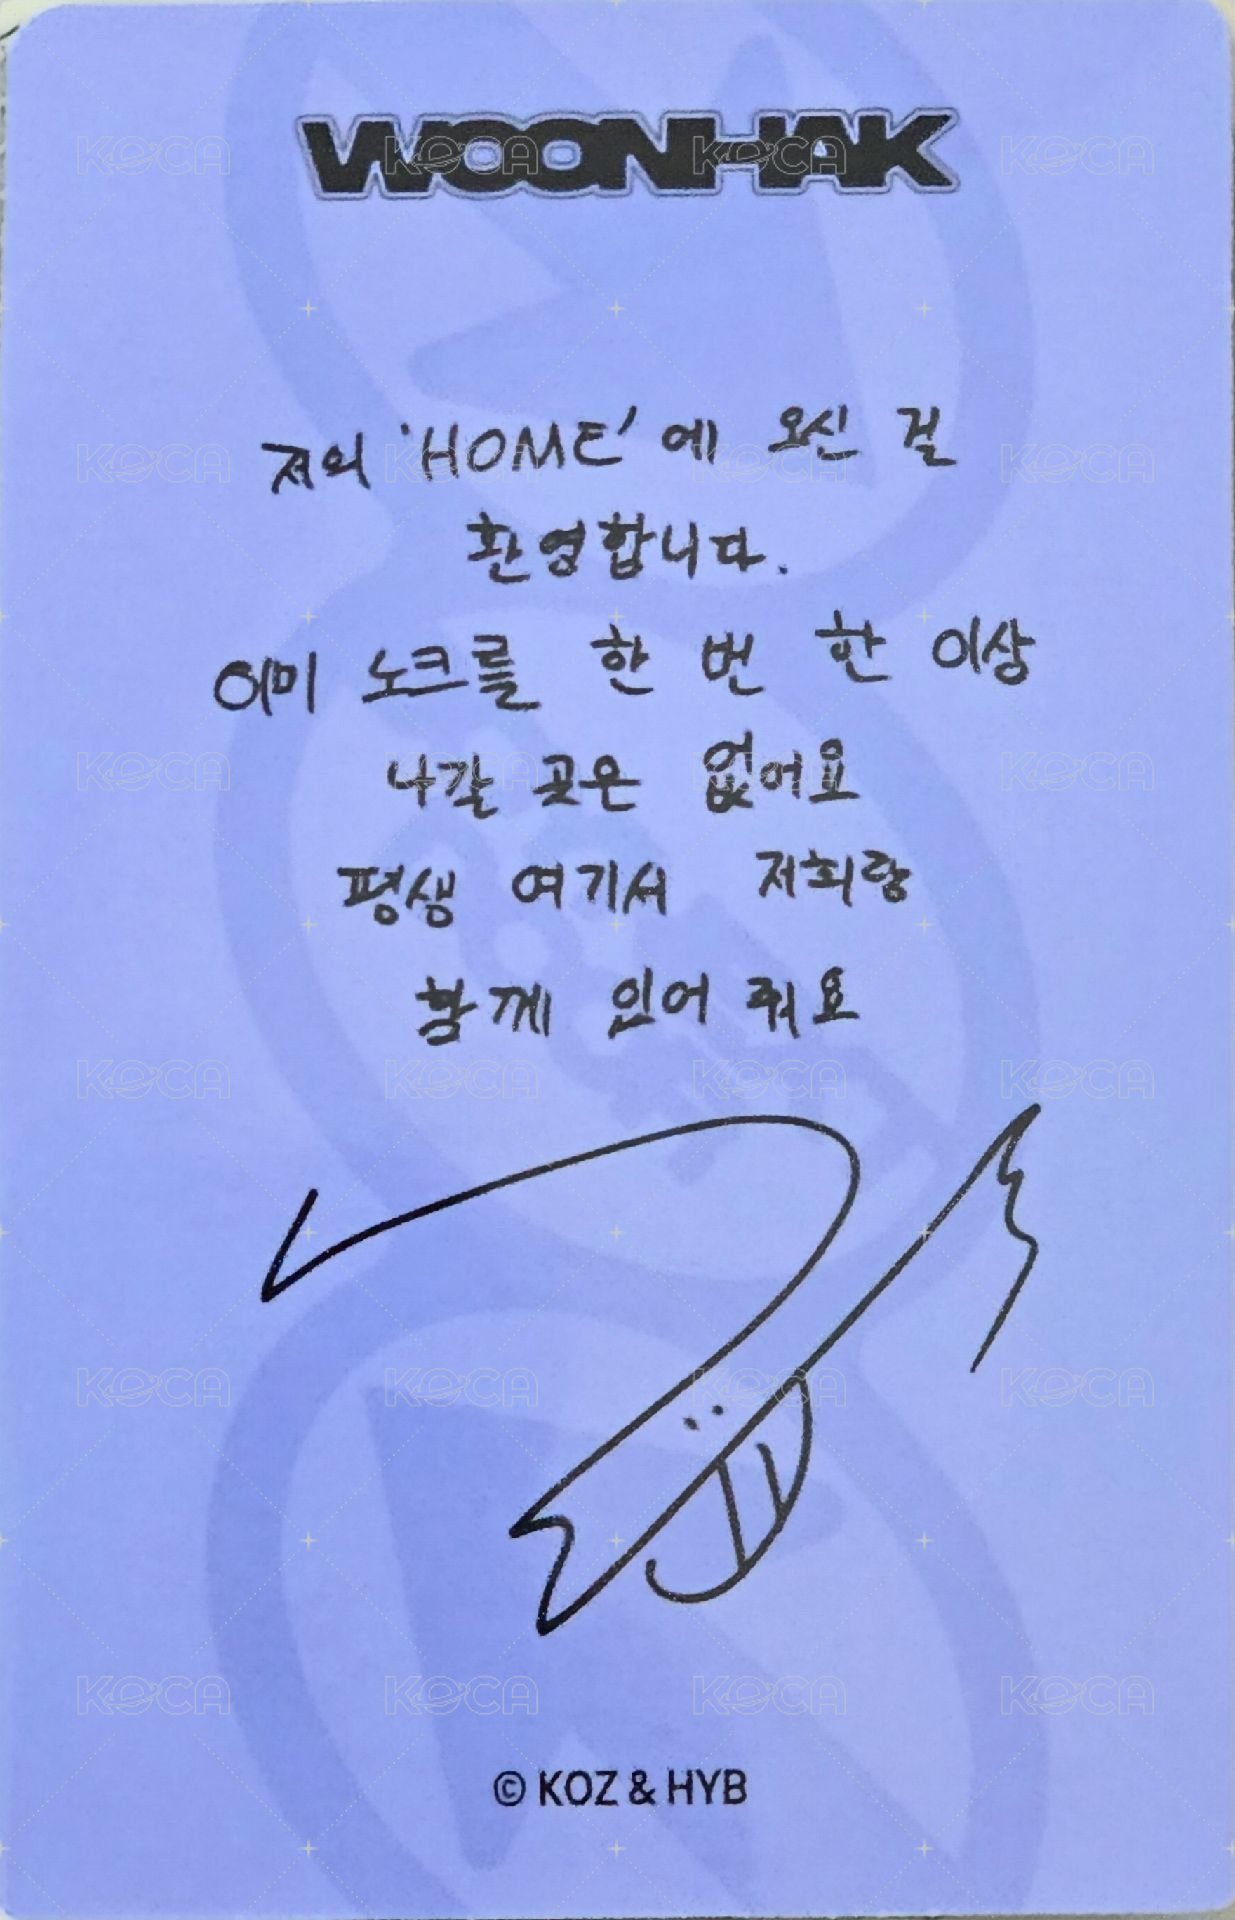 WOONHAK
저의 'HOME'에 오신 걸
환영합니다.
이미 노크를 한 번 한 이상
나갈 곳은 없어요
평생 여기서 저희랑
함께 있어 줘요
© KOZ & HYB
KOCA